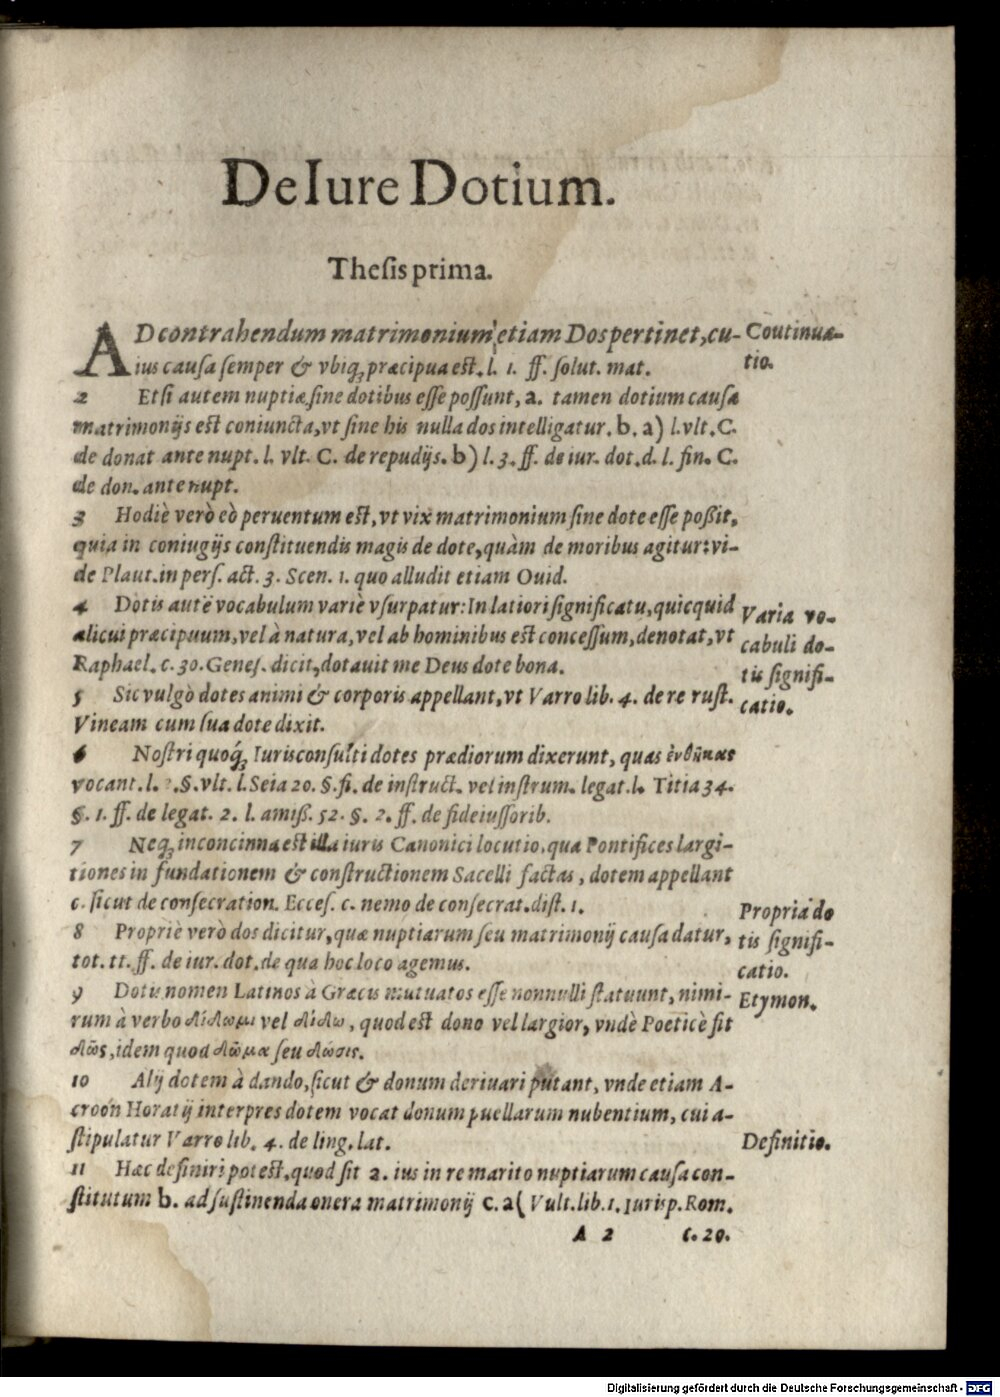 De Iure Dotium.
Thesis prima.
AD contrahendum matrimonium etiam Dos pertinet, cu-
ius causa semper & vbiq; præcipua est. l. 1. ff. solut. mat.
Coutinua-
tio.
2 Etsi autem nuptiæ sine dotibus esse possunt, a. tamen dotium causa
matrimonijs est coniuncta, vt sine his nulla dos intelligatur. b. a) l. vlt. C.
de donat ante nupt. l. vlt. C. de repudijs. b) l. 3. ff. de iur. dot. d. l. fin. C.
de don. ante nupt.
3 Hodiè verò eò peruentum est, vt vix matrimonium sine dote esse poßit,
quia in coniugijs constituendis magis de dote, quàm de moribus agitur: vi-
de Plaut. in pers. act. 3. Scen. 1. quo alludit etiam Ouid.
4 Dotis autē vocabulum variè vsurpatur: In latiori significatu, quicquid
alicui præcipuum, vel à natura, vel ab hominibus est concessum, denotat, vt
Raphael. c. 30. Genes. dicit, dotauit me Deus dote bona.
Varia vo-
cabuli do-
tis signifi-
catio.
5 Sic vulgò dotes animi & corporis appellant, vt Varro lib. 4. de re rust.
Vineam cum sua dote dixit.
6 Nostri quoq́; Iurisconsulti dotes prædiorum dixerunt, quas ἐνθήκας
vocant. l. §. vlt. l. Seia 20. §. fi. de instruct. vel instrum. legat. l. Titia 34.
§. 1. ff. de legat. 2. l. amiß. 52. §. 2. ff. de fideiussorib.
7 Neq; inconcinna est illa iuris Canonici locutio, qua Pontifices largi-
tiones in fundationem & constructionem Sacelli factas, dotem appellant
c. sicut de consecration. Ecces. c. nemo de consecrat. dist. 1.
8 Propriè verò dos dicitur, quæ nuptiarum seu matrimonij causa datur,
tot. tt. ff. de iur. dot. de qua hoc loco agemus.
Propria do
tis signifi-
catio.
9 Dotis nomen Latinos à Græcis mutuatos esse nonnulli statuunt, nimi-
rum à verbo δίδωμι vel δίδω, quod est dono vel largior, vndè Poeticè fit
δῶς, idem quod δῶμα seu δώσις.
Etymon.
10 Alij dotem à dando, sicut & donum deriuari putant, vnde etiam A-
croon Horatij interpres dotem vocat donum puellarum nubentium, cui a-
stipulatur Varro lib. 4. de ling. lat.
Definitio.
11 Hæc definiri potest, quod sit a. ius in re marito nuptiarum causa con-
stitutum b. ad sustinenda onera matrimonij c. a( Vult. lib. 1. Iurisp. Rom.
A 2 c. 20.
Digitalisierung gefördert durch die Deutsche Forschungsgemeinschaft - DFG